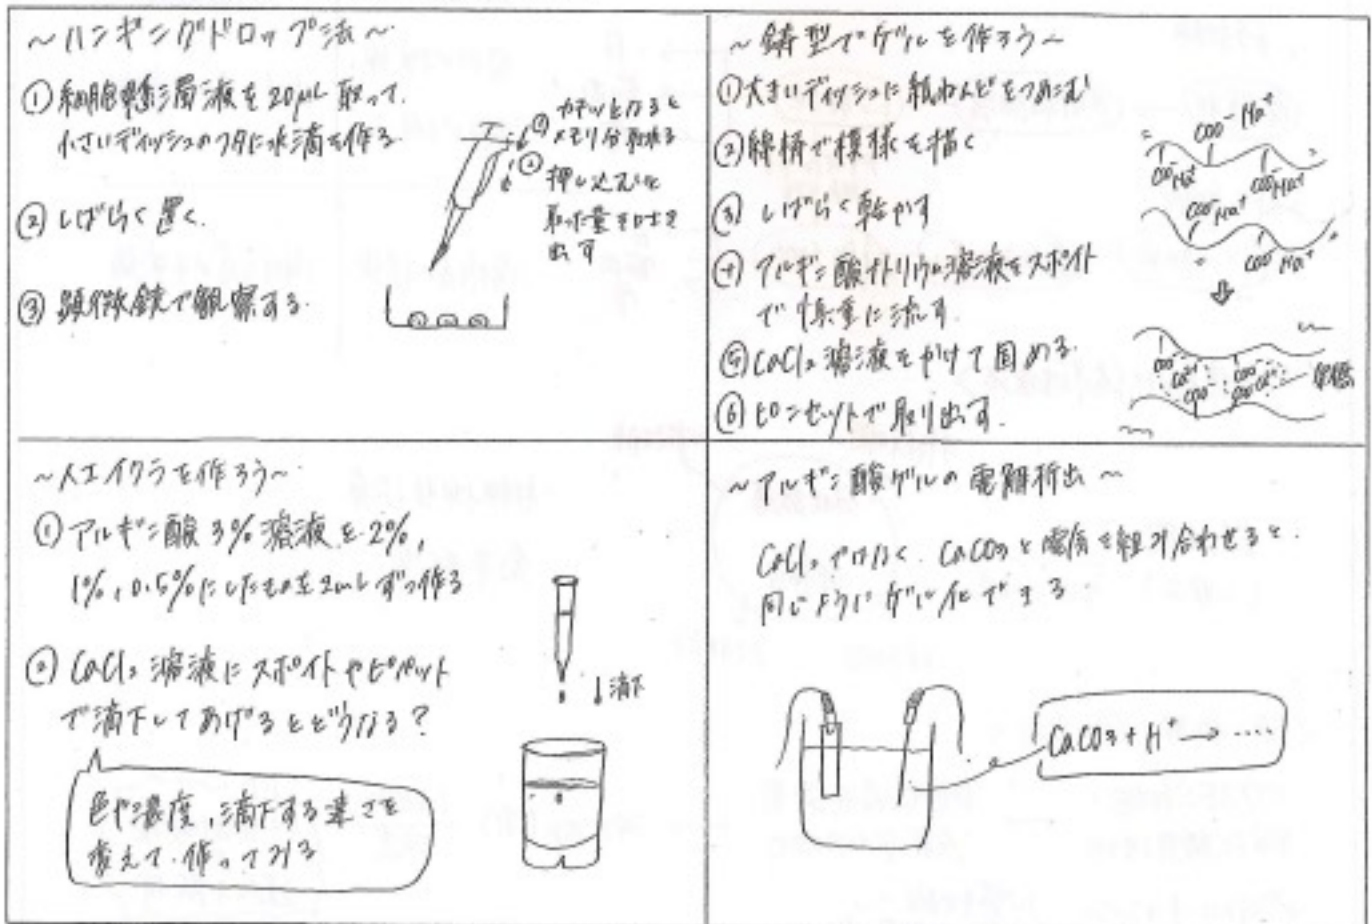 ~ハンギングドロップ法~
① 細胞懸濁液を20μL取って、
小さいディッシュのフタに水滴を作る
② しばらく置く.
③ 顕微鏡で観察する.
① カチッとなると
メモリ分取れる
② 押し込むと
取った量を
出す
~鋳型でゲルを作ろう~
① 大きいディッシュに紙ねんどをつめこむ
② 綿棒で模様を描く
③ しばらく乾かす
④ アルギン酸ナトリウム溶液をスポイト
で慎重に流す.
⑤ CaCl₂ 溶液をかけて固める.
⑥ ピンセットで取り出す.
COO⁻ Na⁺
COO⁻Na⁺
COO⁻Na⁺
COO⁻Na⁺
COO⁻Na⁺
⇩
COO⁻
Ca²⁺
COO⁻
COO⁻
Ca²⁺
COO⁻
架橋
~人工イクラを作ろう~
① アルギン酸 3%溶液を2%,
1%, 0.5%にしたものを2mLずつ作る
② CaCl₂ 溶液にスポイトやピペット
で滴下してあげるとどうなる?
↓滴下
色や濃度, 滴下する速さを
変えて、作ってみる
~アルギン酸ゲルの電解析出~
CaCl₂ではなく、CaCO₃と電気を組み合わせると、
同じようにゲル化できる
CaCO₃ + H⁺ → ‥‥